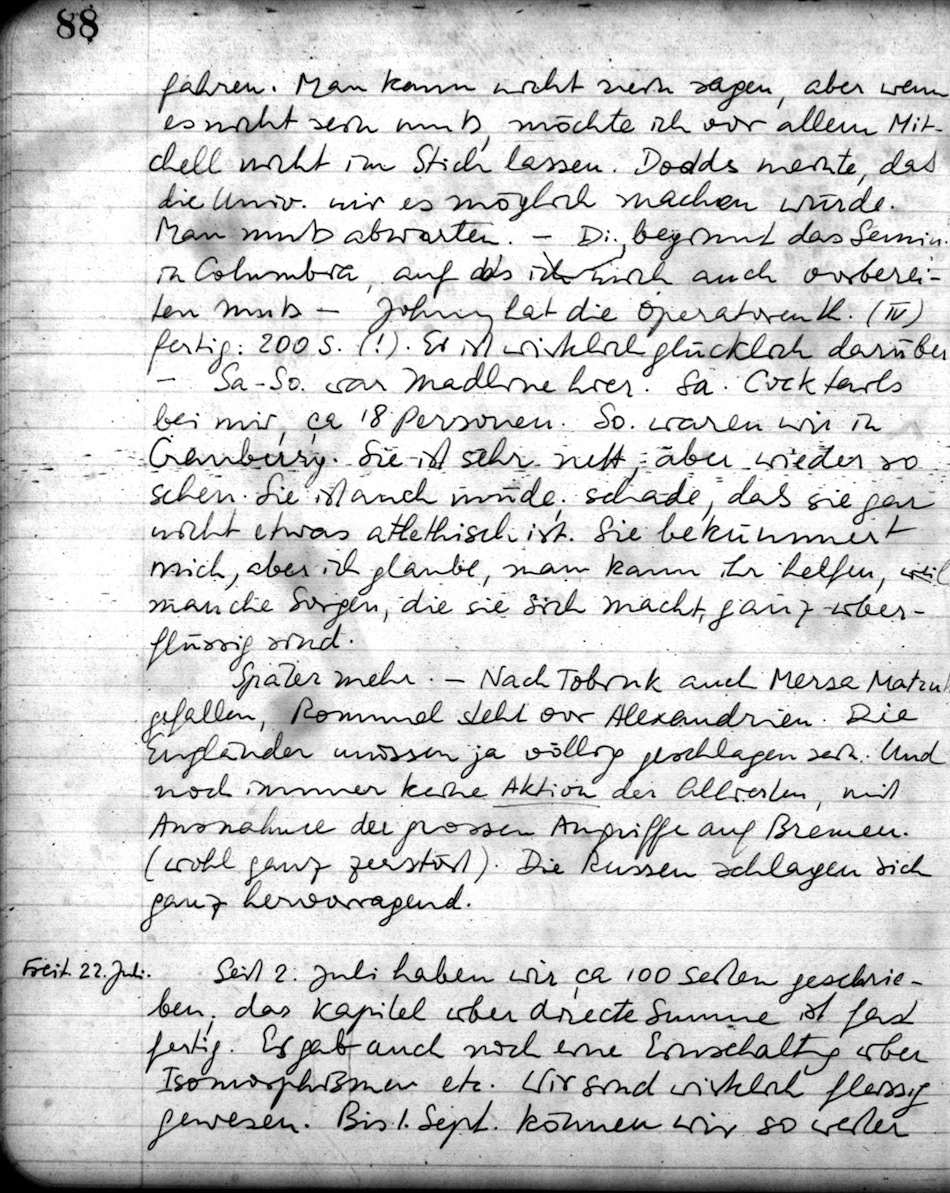 88
fahren. Man kann nicht nein sagen, aber wenn
es nicht sein muß, möchte ich vor allem Mit-
chell nicht im Stich lassen. Dodds meinte, das
die Univ. mir es möglich machen würde.
Man muß abwarten. – Di. beginnt das Semin.
in Columbia, auf das ich mich auch vorberei-
ten muß – Johnny hat die Operatorenth. (IV)
fertig: 200 S. (!). Er ist wirklich glücklich darüber
– Sa-So. war Madline hier. Sa. Cocktails
bei mir, ca 18 Personen. So. waren wir in
Cranbury. Sie ist sehr nett, aber wieder so
scheu. Sie ist auch müde; schade, daß sie gar
nicht etwas athletisch ist. Sie bekümmert
mich, aber ich glaube, man kann ihr helfen, weil
manche Sorgen, die sie sich macht, ganz über-
flüssig sind.
Später mehr. – Nach Tobruk auch Mersa Matruh
gefallen, Rommel steht vor Alexandrien. Die
Engländer müssen ja völlig geschlagen sein. Und
noch immer keine Aktion der Alliierten, mit
Ausnahme der grossen Angriffe auf Bremen.
(wohl ganz zerstört). Die Russen schlagen sich
ganz hervorragend.
Freit 22. Juli. Seit 2. Juli haben wir ca 100 Seiten geschrie-
ben; das Kapitel über directe Summe ist fast
fertig. Es gab auch noch eine Einschaltg über
Isomorphismen etc. Wir sind wirklich fleissig
gewesen. Bis 1. Sept. können wir so weiter